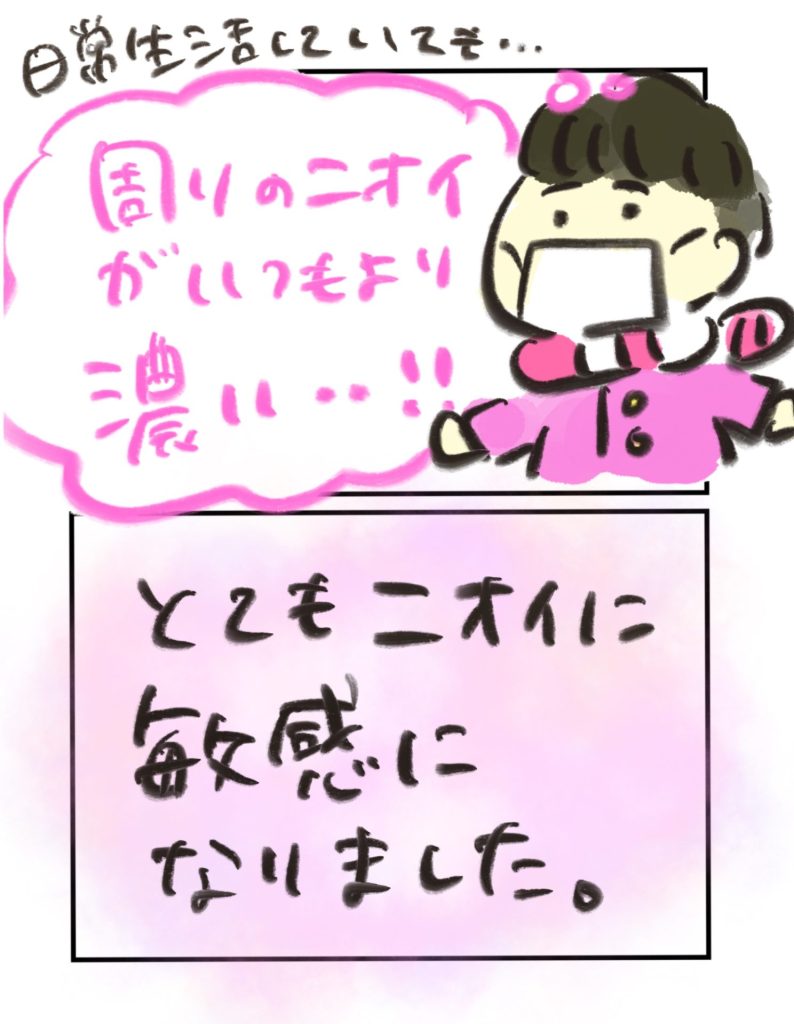 日常生活していても…
周りのニオイ
がいつもより
濃い‥!!
とてもニオイに
敏感に
なりました。